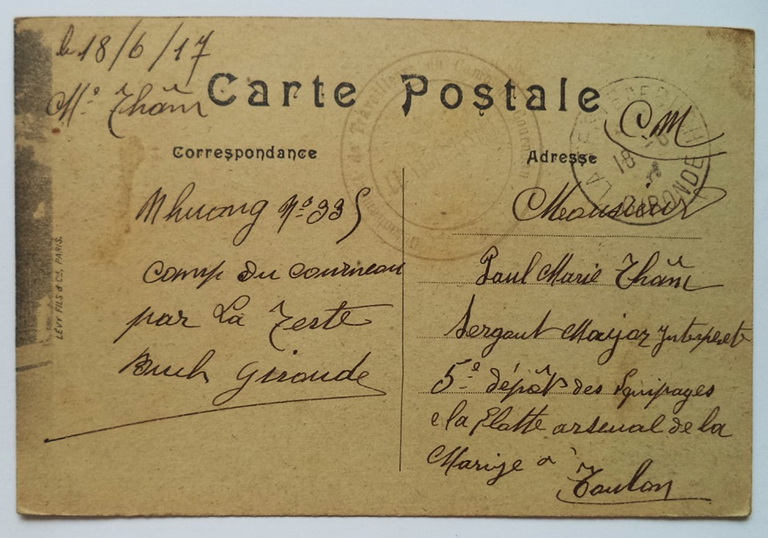 le 18/6/17
Mr Thâm
Carte Postale
CM
Correspondance
Adresse
Nhuong No 335
camp du courneau
par La Teste
Buch Gironde
Monsieur
Paul Marie Thâm
Sergant Major Interprete
5e dépôts des Equipages
de la Flotte arsenal de la
Marine à
Toulon
LA TESTE DE BUCH
18 -6
GIRONDE
LÉVY FILS & Cie, PARIS.